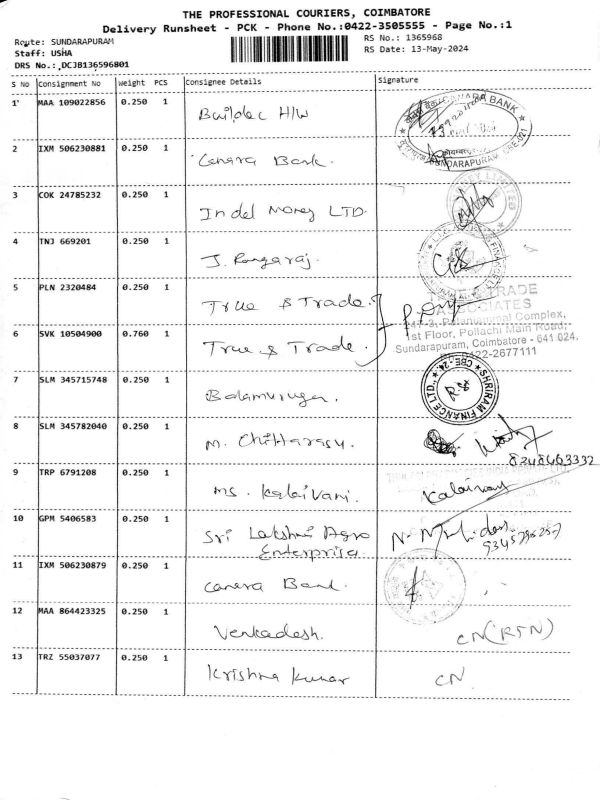 THE PROFESSIONAL COURIERS, COIMBATORE
Delivery Runsheet - PCK - Phone No.:0422-3505555 - Page No.:1
Route: SUNDARAPURAM
RS No.: 1365968
Staff: USHA
RS Date: 13-May-2024
DRS No.: DCJB136596801
S No Consignment No Weight PCS Consignee Details Signature
1 MAA 109022856 0.250 1 Buildec H/W
CANARA BANK
SUNDARAPURAM, CBE-021
2 IXM 506230881 0.250 1 Canara Bank.
3 COK 24785232 0.250 1 Indel Money LTD.
LIMITED
4 TNJ 669201 0.250 1 J. Rangaraj.
5 PLN 2320484 0.250 1 True & Trade.
TRADE
ASSOCIATES
247-3, Palaniammal Complex,
1st Floor, Pollachi Main Road,
Sundarapuram, Coimbatore - 641 024.
0422-2677111
6 SVK 10504900 0.760 1 True & Trade.
7 SLM 345715748 0.250 1 Balamurugan.
SHRIRAM FINANCE LTD., CBE-24.
8 SLM 345782040 0.250 1 M. Chittarasu.
8248463332
9 TRP 6791208 0.250 1 Ms. Kalaivani.
Kalaivany
10 GPM 5406583 0.250 1 Sri Lakshmi Agro
Enterprise.
11 IXM 506230879 0.250 1 Canera Bank.
12 MAA 864423325 0.250 1 Venkadesh.
CN (RTN)
13 TRZ 55037077 0.250 1 Krishna Kumar
CN